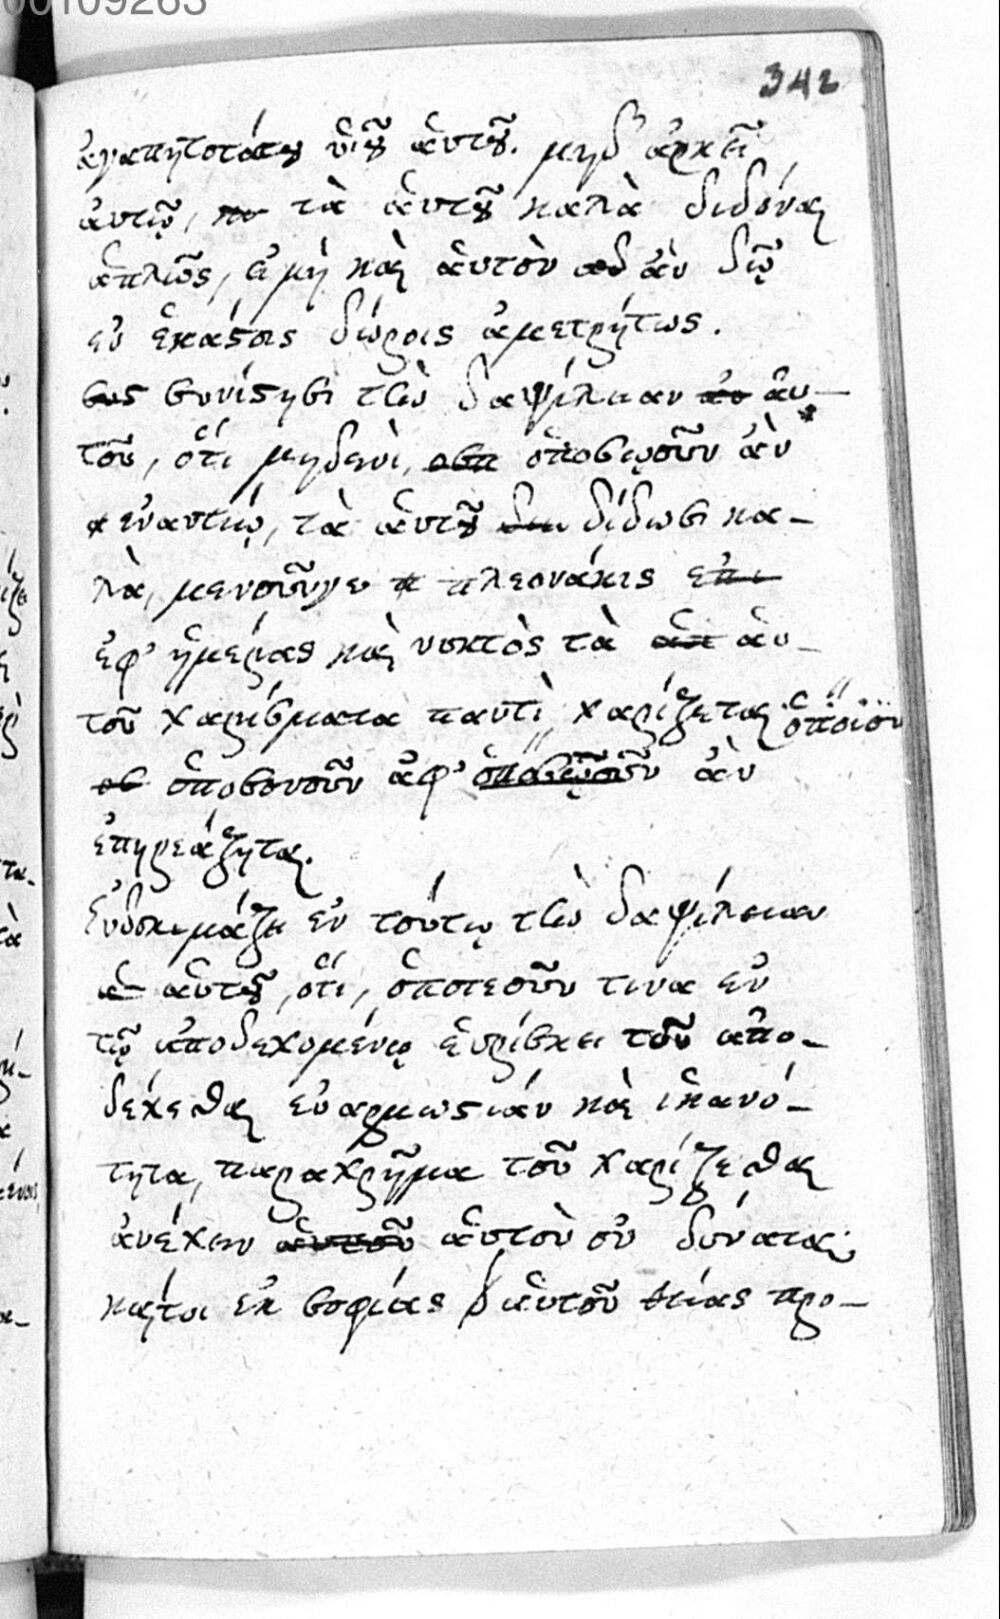 00109263
342
ἀγαπητοτάτου υἱοῦ αὑτοῦ. μηδ' ἀρκεῖ
αὐτῷ, τὰ αὑτοῦ καλὰ διδόναι
ἁπλῶς, εἰ μὴ καὶ αὑτὸν ἂν δῷ
ἐν ἑκάστοις δώροις ἀμετρήτως.
συνίστησι τὴν δαψίλειαν αὑ-
τοῦ, ὅτι μηδενὶ, ὁποσῳοῦν ἂν
ἐναντίῳ, τὰ αὑτοῦ δίδωσι κα-
λὰ, μενοῦνγε πλεονάκις
ἐφ' ἡμέρας καὶ νυκτὸς τὰ αὑ-
τοῦ χαρίσματα παντὶ χαρίζεται
ὁποσονοῦν ἀφ' ὁποιουοῦν ἂν
ἐπηρεάζηται.
Εὐδοκιμάζει ἐν τούτῳ τὴν δαψίλειαν
αὑτοῦ, ὅτι, ὁποτεοῦν τινα ἐν
τῷ ἀποδεχομένῳ εὑρίσκει τοῦ ἀπο-
δέχεσθαι εὐαρμωστίαν καὶ ἱκανό-
τητα, παραχρῆμα τοῦ χαρίζεσθαι
ἀνέχειν αὑτὸν οὐ δύναται·
καίτοι ἐκ σοφίας αὑτοῦ θείας προ-